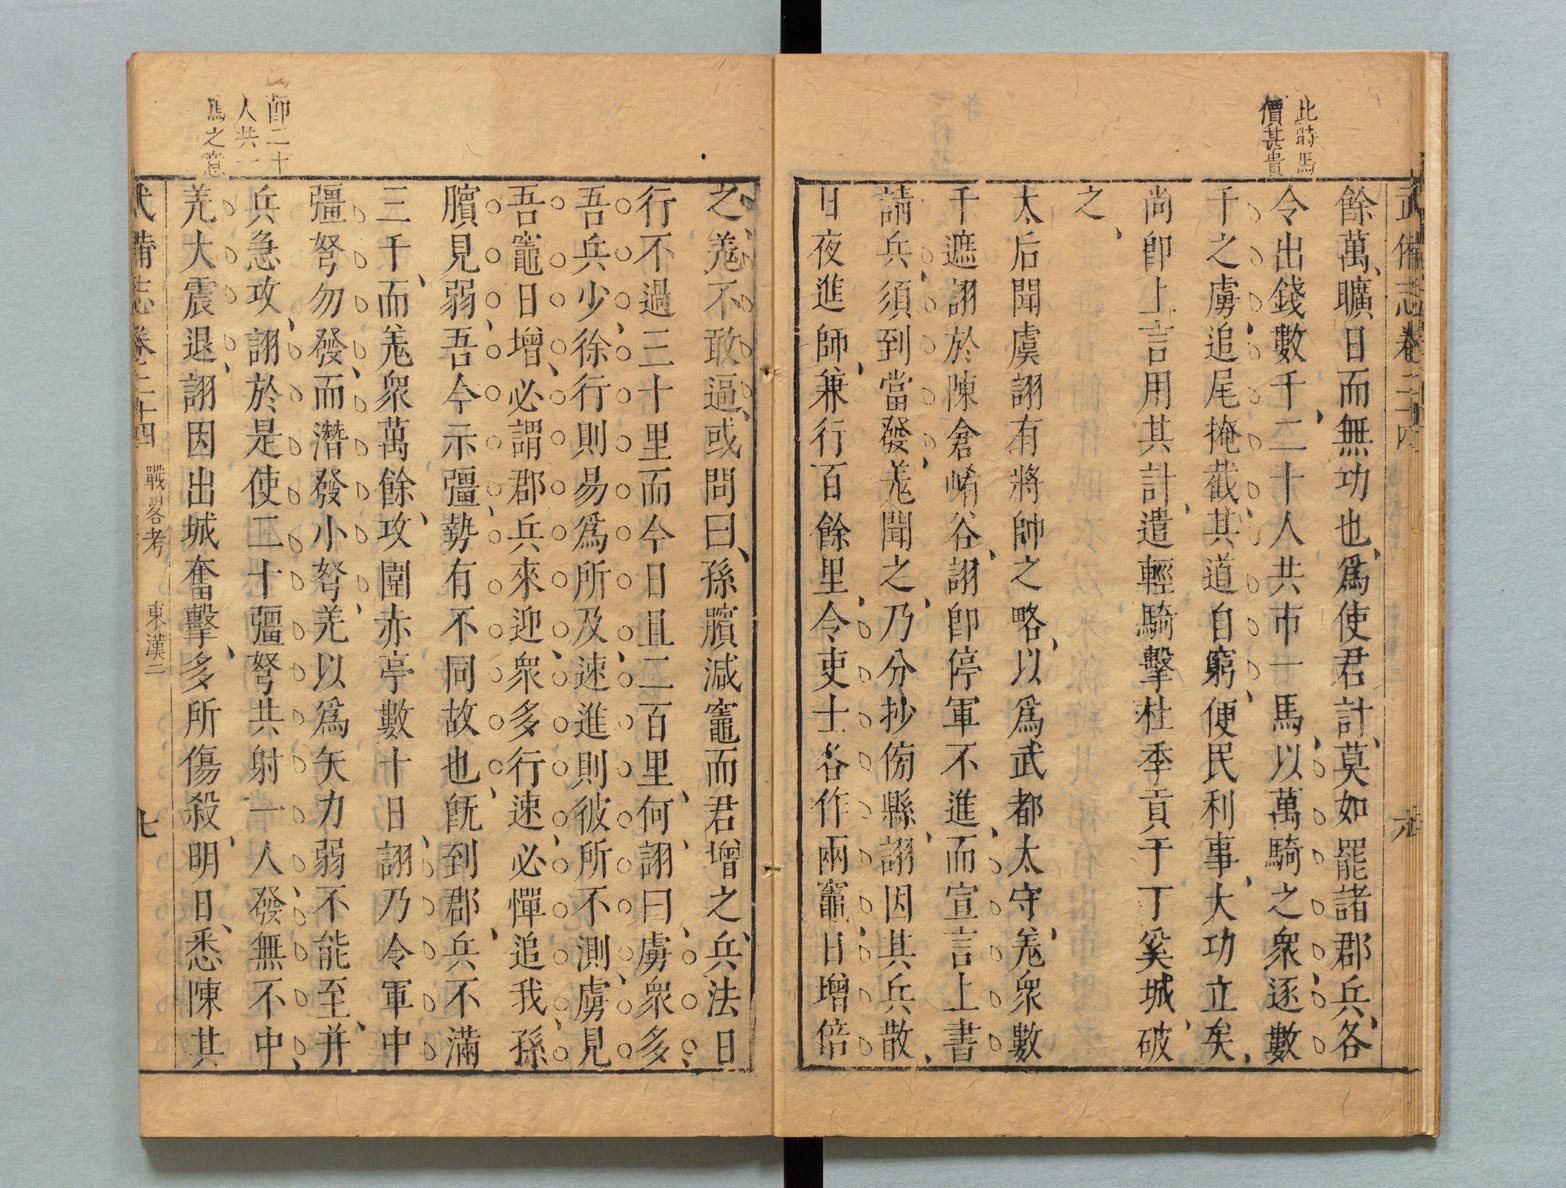 此時馬
價甚貴
武備志卷二十四
六
餘萬曠日而無功也爲使君計莫如罷諸郡兵各
令出錢數千二十人共市一馬以萬騎之衆逐數
千之虜追尾掩截其道自窮便民利事大功立矣
尚卽上言用其計遣輕騎擊杜季貢于丁奚城破
之
太后聞虞詡有將帥之略以爲武都太守羗衆數
千遮詡於陳倉崤谷詡卽停軍不進而宣言上書
請兵須到當發羗聞之乃分抄傍縣詡因其兵散
日夜進師兼行百餘里令吏士各作兩竈日增倍
之羗不敢逼或問曰孫臏減竈而君增之兵法日
行不過三十里而今日且二百里何詡曰虜衆多
吾兵少徐行則易爲所及速進則彼所不測虜見
吾竈日增必謂郡兵來迎衆多行速必憚追我孫
臏見弱吾今示彊勢有不同故也旣到郡兵不滿
三千而羗衆萬餘攻圍赤亭數十日詡乃令軍中
彊弩勿發而潛發小弩羌以爲矢力弱不能至并
兵急攻詡於是使二十彊弩共射一人發無不中
羌大震退詡因出城奮擊多所傷殺明日悉陳其
卽二十
人共一
馬之意
武備志卷二十四 戰畧考 東漢二
七